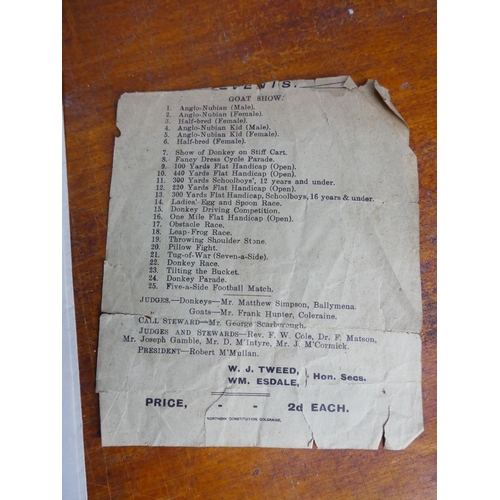 EVENTS.
GOAT SHOW.
1. Anglo-Nubian (Male).
2. Anglo-Nubian (Female).
3. Half-bred (Female).
4. Anglo-Nubian Kid (Male).
5. Anglo-Nubian Kid (Female).
6. Half-bred (Female).
7. Show of Donkey on Stiff Cart.
8. Fancy Dress Cycle Parade.
9. 100 Yards Flat Handicap (Open).
10. 440 Yards Flat Handicap (Open).
11. 300 Yards Schoolboys', 12 years and under.
12. 220 Yards Flat Handicap (Open).
13. 300 Yards Flat Handicap, Schoolboys, 16 years & under.
14. Ladies' Egg and Spoon Race.
15. Donkey Driving Competition.
16. One Mile Flat Handicap (Open).
17. Obstacle Race.
18. Leap-Frog Race.
19. Throwing Shoulder Stone.
20. Pillow Fight.
21. Tug-of-War (Seven-a-Side).
22. Donkey Race.
23. Tilting the Bucket.
24. Donkey Parade.
25. Five-a-Side Football Match.
JUDGES.—Donkeys—Mr. Matthew Simpson, Ballymena.
Goats—Mr. Frank Hunter, Coleraine.
CALL STEWARD—Mr. George Scarborough.
JUDGES AND STEWARDS—Rev. F. W. Cole, Dr. F. Matson,
Mr. Joseph Gamble, Mr. D. M'Intyre, Mr. J. M'Cormick.
PRESIDENT—Robert M'Mullan.
W. J. TWEED,
WM. ESDALE, } Hon. Secs.
PRICE, - - 2d EACH.
NORTHERN CONSTITUTION COLERAINE.